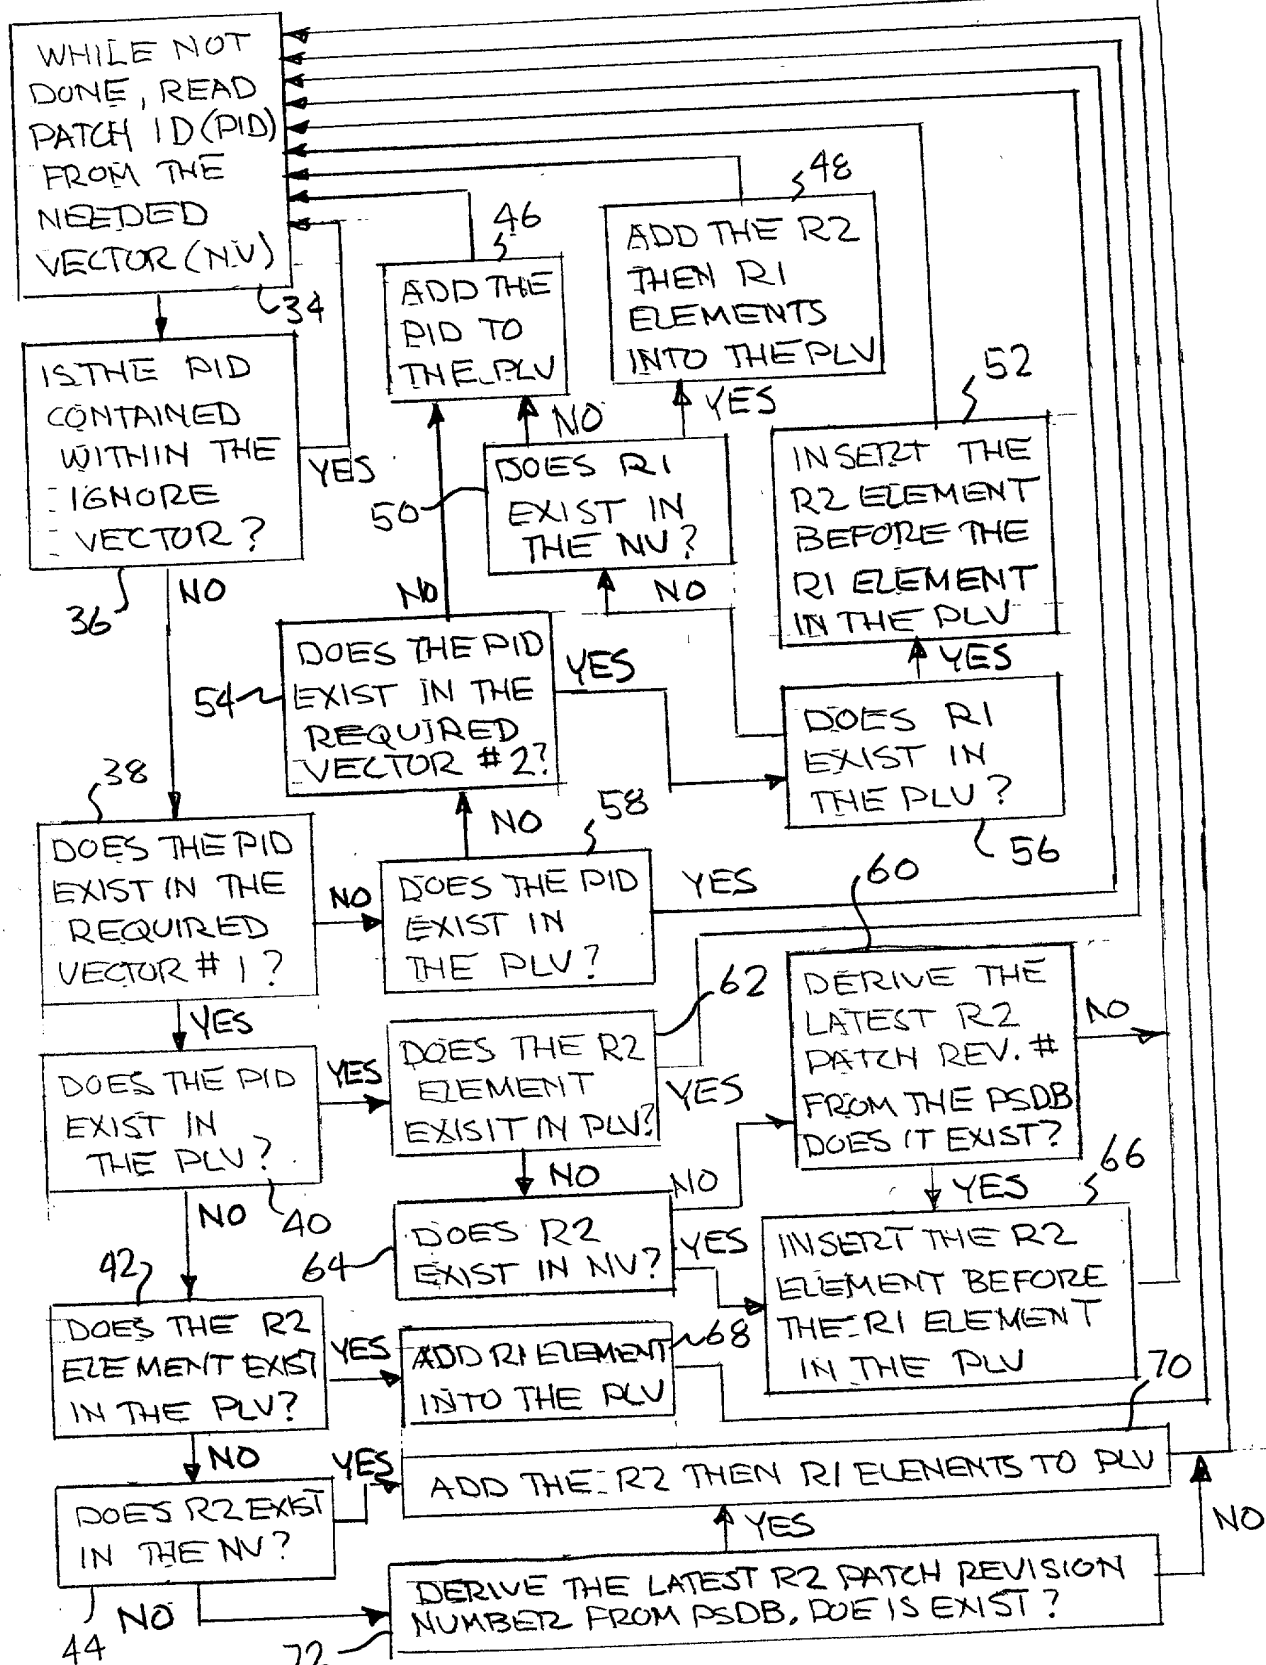 WHILE NOT
DONE, READ
PATCH ID (PID)
FROM THE
NEEDED
VECTOR (NV)
34
IS THE PID
CONTAINED
WITHIN THE
IGNORE
VECTOR?
YES
36
NO
46
ADD THE
PID TO
THE PLV
48
ADD THE R2
THEN R1
ELEMENTS
INTO THE PLV
NO
YES
50
DOES R1
EXIST IN
THE NV?
52
INSERT THE
R2 ELEMENT
BEFORE THE
R1 ELEMENT
IN THE PLV
NO
NO
YES
54
DOES THE PID
EXIST IN THE
REQUIRED
VECTOR #2?
YES
DOES R1
EXIST IN
THE PLV?
56
38
DOES THE PID
EXIST IN THE
REQUIRED
VECTOR #1?
NO
NO
58
DOES THE PID
EXIST IN
THE PLV?
YES
60
DERIVE THE
LATEST R2
PATCH REV. #
FROM THE PSDB
DOES IT EXIST?
NO
YES
DOES THE PID
EXIST IN
THE PLV?
40
YES
62
DOES THE R2
ELEMENT
EXISIT IN PLV?
YES
NO
NO
64
DOES R2
EXIST IN NV?
NO
YES
YES
66
INSERT THE R2
ELEMENT BEFORE
THE R1 ELEMENT
IN THE PLV
42
DOES THE R2
ELEMENT EXIST
IN THE PLV?
YES
68
ADD R1 ELEMENT
INTO THE PLV
70
NO
YES
ADD THE R2 THEN R1 ELENENTS TO PLV
DOES R2 EXIST
IN THE NV?
44
NO
YES
NO
DERIVE THE LATEST R2 PATCH REVISION
NUMBER FROM PSDB. DOE IS EXIST?
72